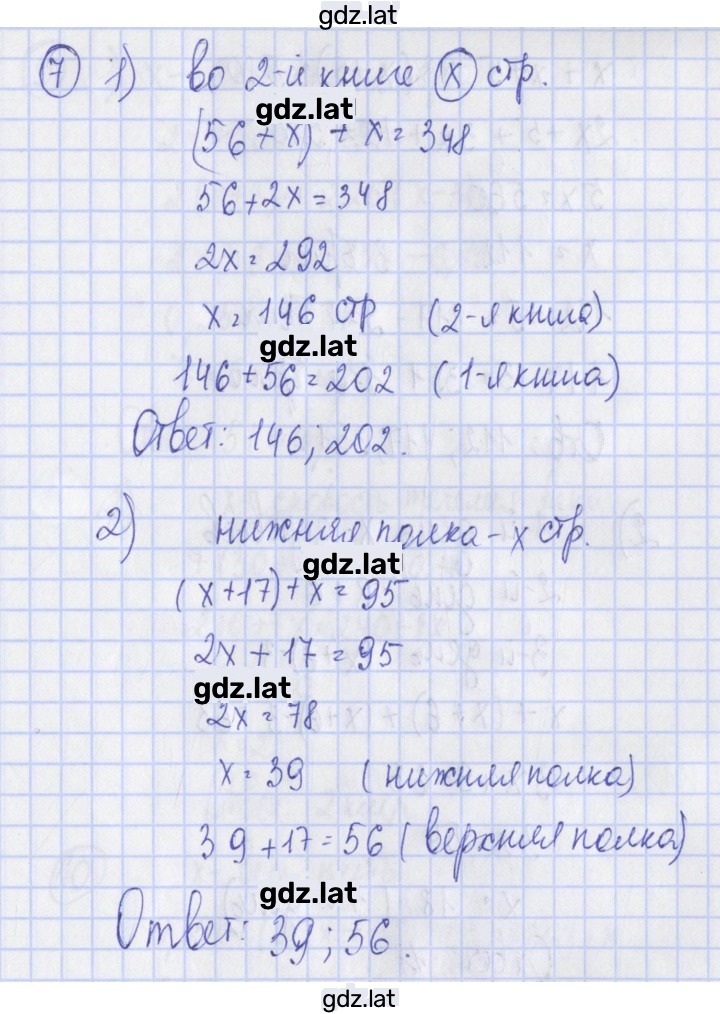 gdz.lat
7 1) во 2-й книге x стр.
gdz.lat
(56 + x) + x = 348
56 + 2x = 348
2x = 292
x = 146 стр (2-я книга)
gdz.lat
146 + 56 = 202 (1-я книга)
Ответ: 146; 202.
2) нижняя полка - x стр.
gdz.lat
(x + 17) + x = 95
2x + 17 = 95
gdz.lat
2x = 78
x = 39 (нижняя полка)
39 + 17 = 56 (верхняя полка)
gdz.lat
Ответ: 39; 56.
gdz.lat